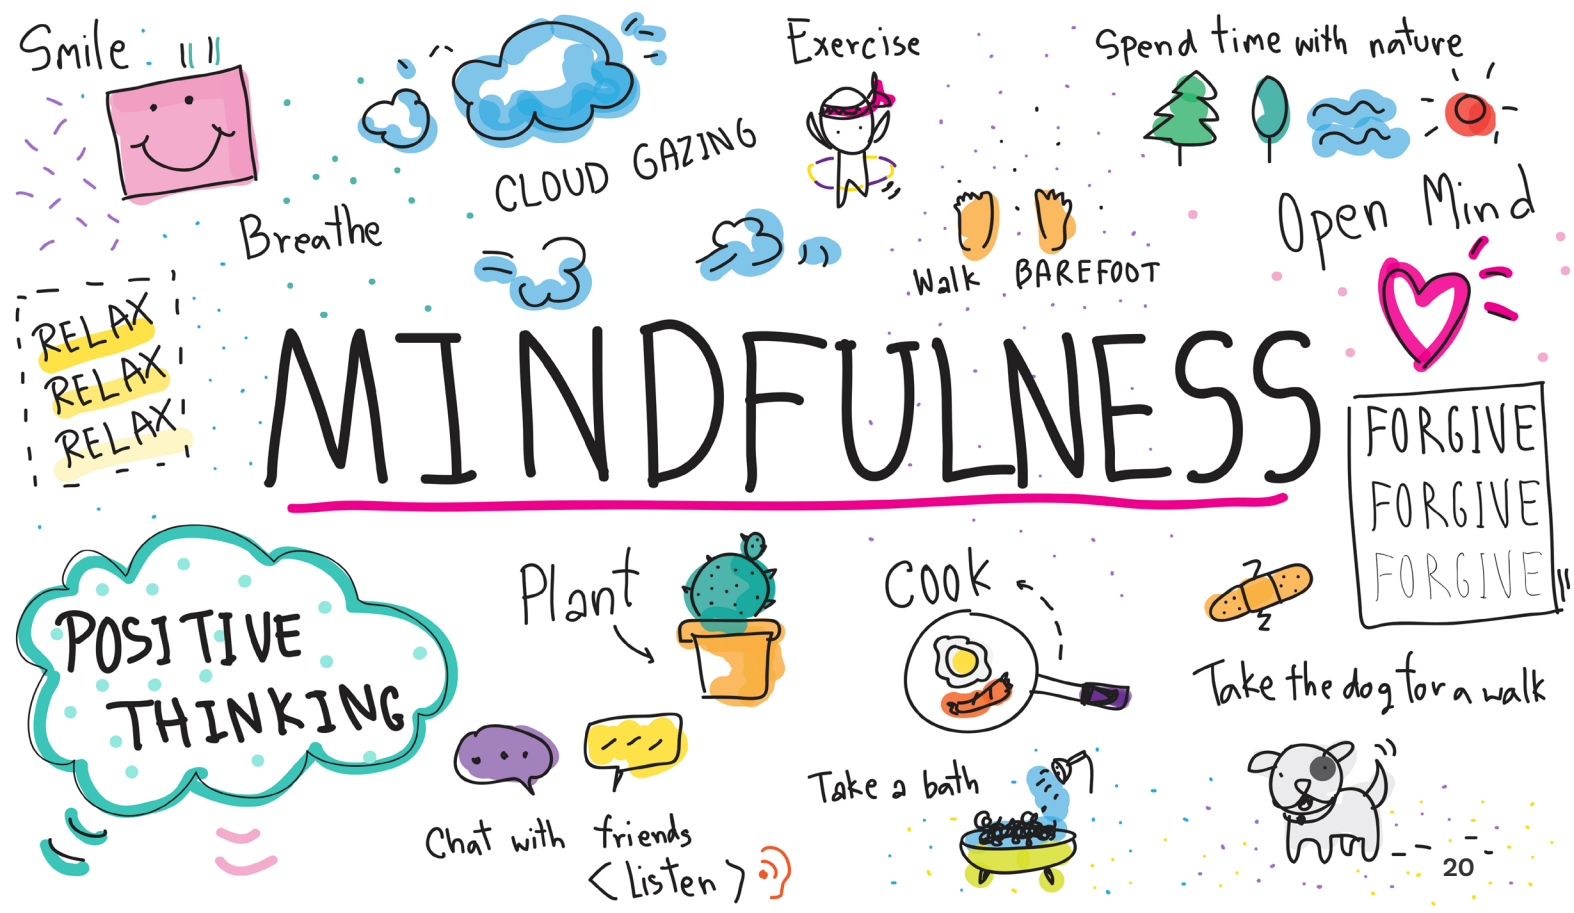 Smile
Exercise
Spend time with nature
CLOUD GAZING
Breathe
Walk BAREFOOT
Open Mind
RELAX
RELAX
RELAX
MINDFULNESS
FORGIVE
FORGIVE
FORGIVE
POSITIVE
THINKING
Plant
COOK
Take the dog for a walk
Chat with friends
<Listen>
Take a bath
20